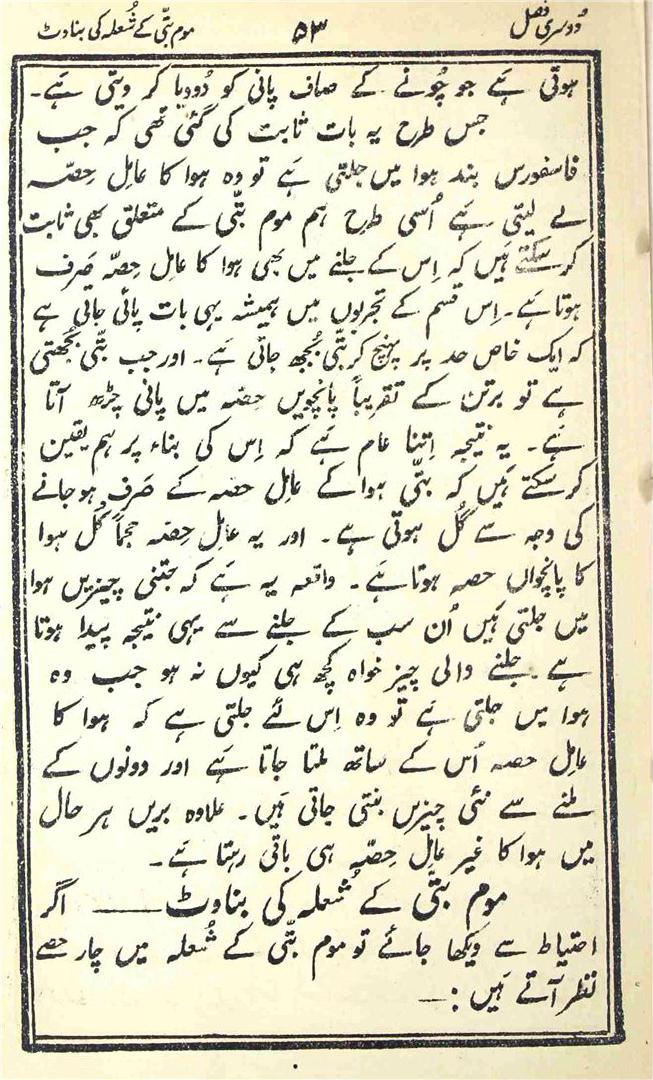 دوسری فصل ۵۳ موم بتّی کے شُعلہ کی بناوٹ
ہوتی ہَے جو چُونے کے صاف پانی کو دُودیا کر دیتی ہَے۔
جس طرح یہ بات ثابت کی گئی تھی کہ جب
فاسفورس بند ہوا میں جلتی ہَے تو وہ ہوا کا عامِل حِصّہ
لے لیتی ہَے اُسی طرح ہم موم بتّی کے متعلق بھی ثابت
کر سکتے ہَیں کہ اِس کے جلنے میں بھی ہوا کا عامِل حِصّہ صَرف
ہوتا ہَے۔ اِس قسم کے تجربوں میں ہمیشہ یہی بات پائی جاتی ہَے
کہ ایک خاص حد پر پہنچ کر بتّی بُجھ جاتی ہَے۔ اور جب بتّی بُجھتی
ہَے تو برتن کے تقریباً پانچویں حِصّہ میں پانی چڑھ آتا
ہَے۔ یہ نتیجہ اِتنا عام ہَے کہ اِس کی بناء پر ہم یقین
کر سکتے ہَیں کہ بتّی ہوا کے عامِل حصہ کے صَرف ہو جانے
کی وجہ سے گُل ہوتی ہَے۔ اور یہ عامِل حِصّہ حجماً کُل ہوا
کا پانچواں حصہ ہوتا ہَے۔ واقعہ یہ ہَے کہ جتنی چیزیں ہوا
میں جلتی ہَیں اُن سب کے جلنے سے یہی نتیجہ پیدا ہوتا
ہَے۔ جلنے والی چیز خواہ کچھ ہی کیوں نہ ہو جب وہ
ہوا میں جلتی ہَے تو وہ اِس لئے جلتی ہَے کہ ہوا کا
عامِل حصہ اُس کے ساتھ ملتا جاتا ہَے اور دونوں کے
ملنے سے نئی چیزیں بنتی جاتی ہَیں۔ علاوہ بریں ہر حال
میں ہوا کا غیر عامِل حِصّہ ہی باقی رہتا ہَے۔
موم بتّی کے شُعلہ کی بناوٹ — اگر
احتیاط سے دیکھا جائے تو موم بتّی کے شُعلہ میں چار حصے
نظر آتے ہَیں :—